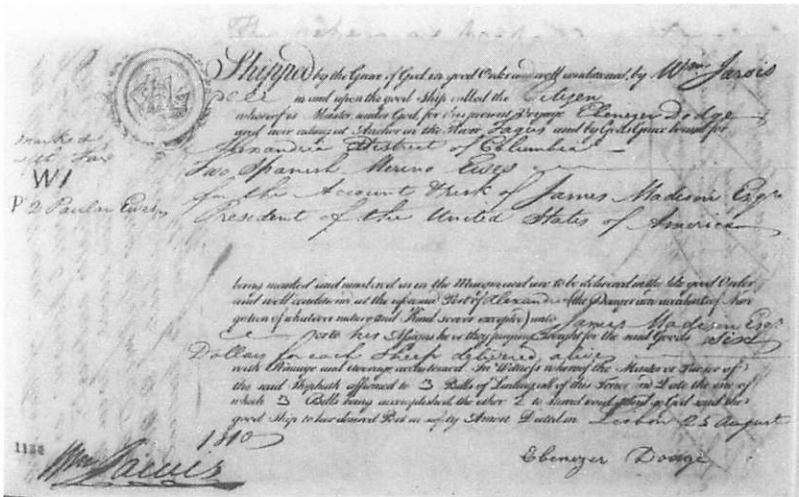 Shipped by the Grace of God in good Order and well conditioned, by Wm Jarvis
in and upon the good Ship called the Citizen
whereof is Master, under God, for this present Voyage Ebenezer Dodge
and now riding at Anchor in the River Tagus and by God's Grace bound for
Alexandria District of Columbia
Two Spanish Merino Ewes
for the Account & risk of James Madison Esqr
President of the United States of America
marked
with Tar
W I
P 2 Paular Ewes
being marked and numbered as in the Margin and are to be delivered in the like good Order
and well conditioned at the aforesaid Port of Alexandria (the Danger and accidents of Navi-
gation of whatever nature and Kind soever excepted) unto James Madison Esqr
or to his Assigns he or they paying Freight for the said Goods Six
Dollars for each Sheep delivered alive
with Primage and average accustomed. In Witness whereof the Master or Purser of
the said Ship hath affirmed to 3 Bills of Lading all of this Tenor and Date the one of
which 3 Bills being accomplished, the other 2 to stand void. And so God send the
good Ship to her desired Port in safety Amen Dated in Lisbon 25 August
1810
Wm Jarvis
Ebenezer Dodge